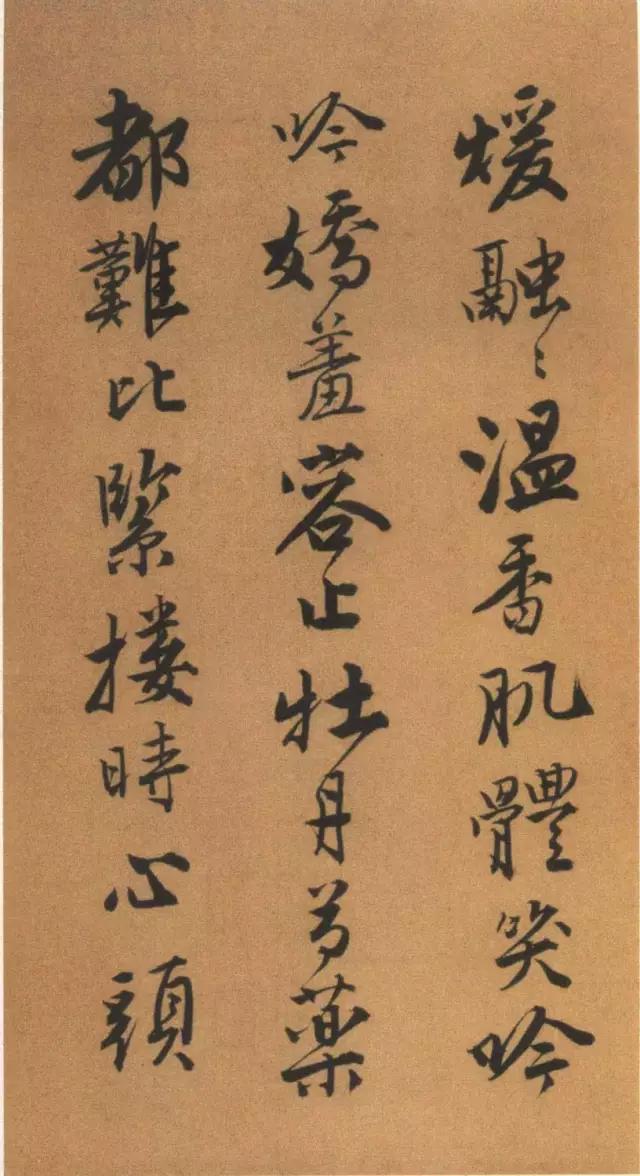 煖融〻溫香肌體笑吟
吟嬌羞容止牡丹芍藥
都難比緊摟時心頭